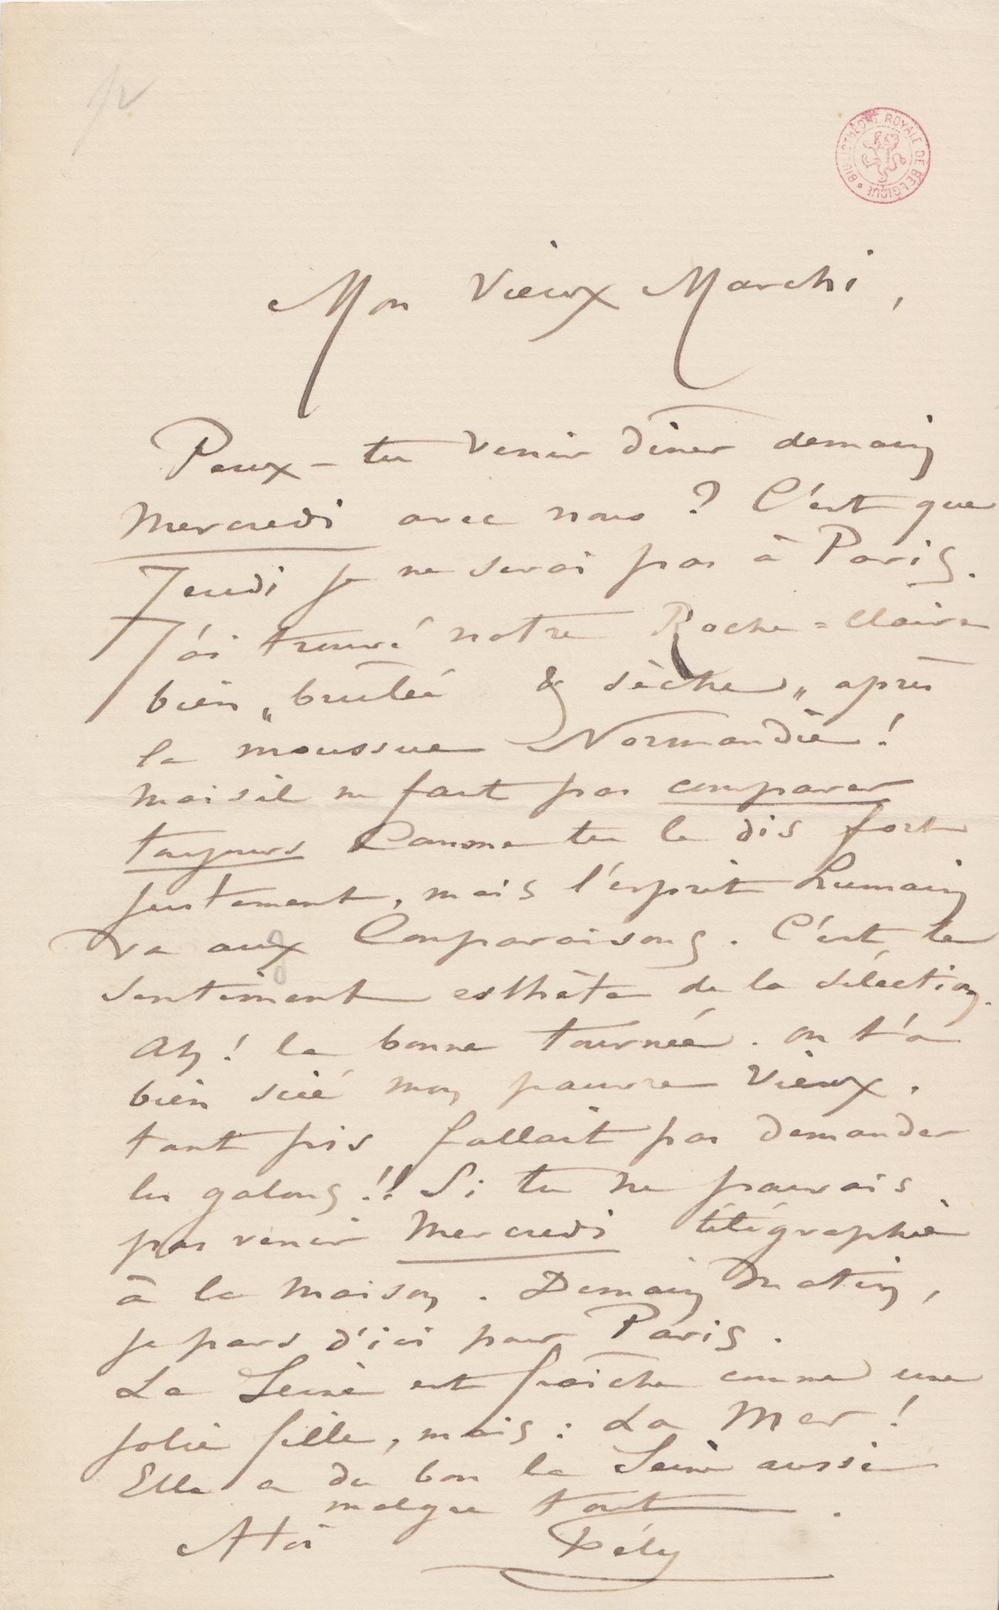 BIBLIOTHÈQUE ROYALE DE BELGIQUE
Mon Vieux Marchi,
Peux-tu venir dîner demain
Mercredi avec nous ? C'est que
Jeudi je ne serai pas à Paris.
J'ai trouvé notre Roche-Claire
bien „brûlée & sèche„ après
la moussue Normandie !
mais il ne faut pas comparer
toujours Comme tu le dis fort
justement, mais l'esprit humain
va aux Comparaisons. C'est le
sentiment esthète de la sélection.
Ah ! la bonne tournée. on t'a
bien scié mon pauvre Vieux.
tant pis fallait pas demander
les galons !! Si tu ne pouvais
pas venir Mercredi télégraphie
à la maison. Demain matin,
je pars d'ici pour Paris.
La Seine est fraîche comme une
jolie fille, mais : La Mer !
Elle a du bon la Seine aussi
malgré tout.
A toi
Fély